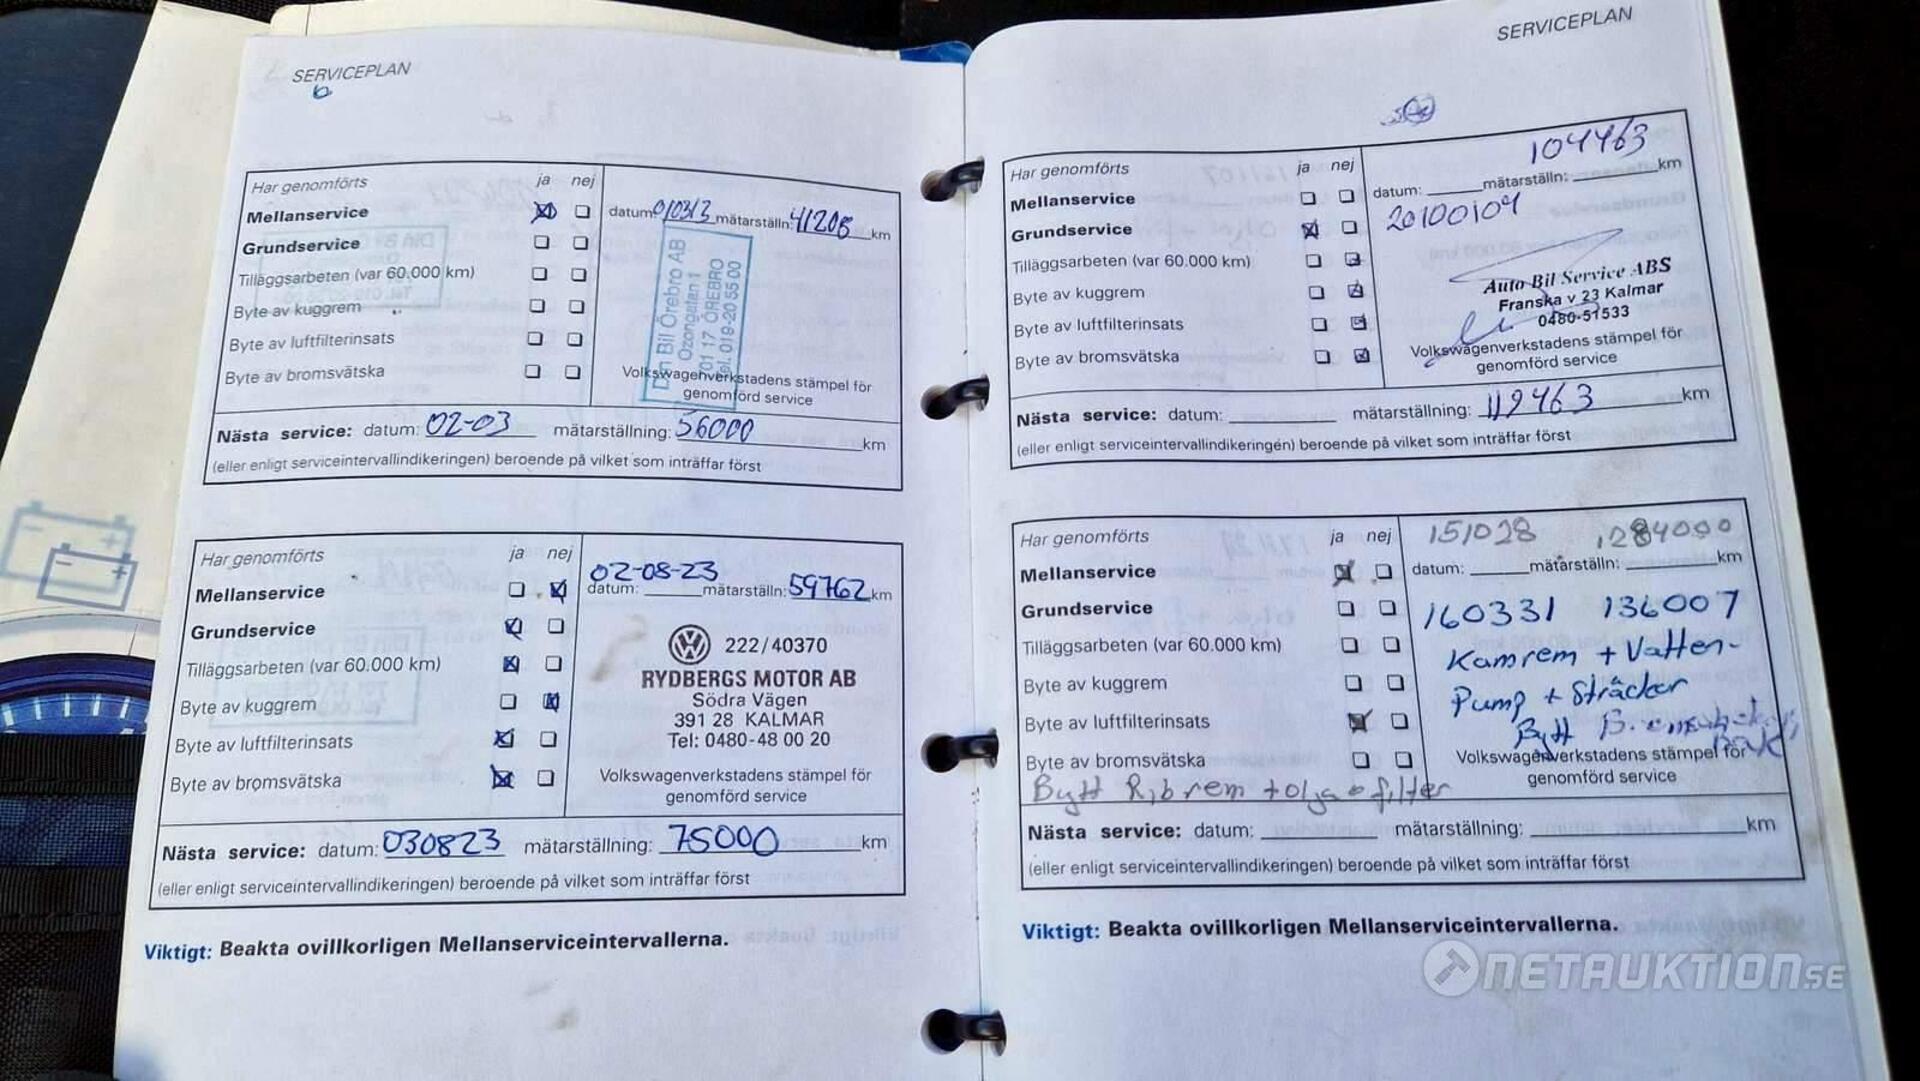 SERVICEPLAN
6
Har genomförts ja nej
Mellanservice
datum: 010313 mätarställn: 41208 km
Grundservice
Tilläggsarbeten (var 60.000 km)
Byte av kuggrem
Byte av luftfilterinsats
Byte av bromsvätska
Din Bil Örebro AB
Ozongatan 1
701 17 ÖREBRO
Tel. 019-20 55 00
Volkswagenverkstadens stämpel för
genomförd service
Nästa service: datum: 02-03 mätarställning: 56000 km
(eller enligt serviceintervallindikeringen) beroende på vilket som inträffar först
Har genomförts ja nej
Mellanservice
Grundservice
Tilläggsarbeten (var 60.000 km)
Byte av kuggrem
Byte av luftfilterinsats
Byte av bromsvätska
02-08-23
datum: mätarställn: 59762 km
222/40370
RYDBERGS MOTOR AB
Södra Vägen
391 28 KALMAR
Tel: 0480-48 00 20
Volkswagenverkstadens stämpel för
genomförd service
Nästa service: datum: 030823 mätarställning: 75000 km
(eller enligt serviceintervallindikeringen) beroende på vilket som inträffar först
Viktigt: Beakta ovillkorligen Mellanserviceintervallerna.
SERVICEPLAN
Har genomförts ja nej
Mellanservice
Grundservice
Tilläggsarbeten (var 60.000 km)
Byte av kuggrem
Byte av luftfilterinsats
Byte av bromsvätska
104463
datum: mätarställn: km
20100104
Auto Bil Service ABS
Franska v 23 Kalmar
0480-51533
Volkswagenverkstadens stämpel för
genomförd service
Nästa service: datum: mätarställning: 119463 km
(eller enligt serviceintervallindikeringen) beroende på vilket som inträffar först
Har genomförts ja nej
Mellanservice
Grundservice
Tilläggsarbeten (var 60.000 km)
Byte av kuggrem
Byte av luftfilterinsats
Byte av bromsvätska
151028
datum: mätarställn: km
160331 136007
Kamrem + Vatten-
Pump + Sträckar
Bytt
Volkswagenverkstadens stämpel för
genomförd service
Bytt Ribrem + olja o filter
Nästa service: datum: mätarställning: km
(eller enligt serviceintervallindikeringen) beroende på vilket som inträffar först
Viktigt: Beakta ovillkorligen Mellanserviceintervallerna.
NETAUKTION.SE